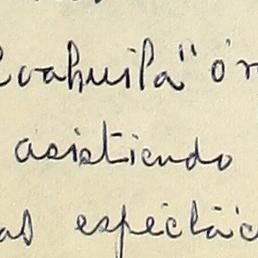 Coahuila" ór
asistiendo
as espectác